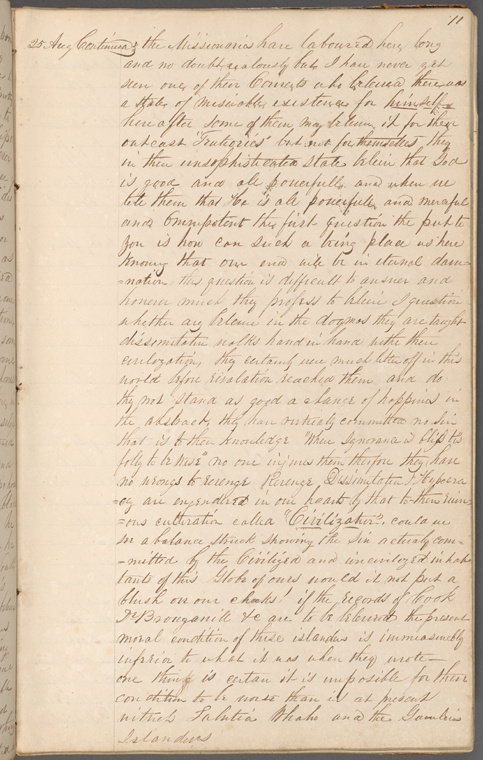 11
25 Aug Continued the Missionaries have laboured here long
and no doubt zealously but I have never yet
seen one of their Converts who believed there was
a state of miserable existence for himself
hereafter some of them may believe it for their
outcast but not for themselves, they
in their unsophisticated state believe that God
is good and all powerfull and when we
tell them that he is all powerfull and mercifull
and Omnipotent the first question the put to
you is how can such a being place us here
knowing that our end will be in eternal dam-
-nation, this question is difficult to answer and
however much they profess to believe I question
whether any believe in the dogmas they are taught
dissimulation walks hand in hand with their
civilization, they certainly were much better off in this
world before revalation reached them and do
they not stand as good a chance of happiness in
the abstract, they have committed no sin
that is to their knowledge "Where Ignorance is bliss tis
folly to be wise" no one injures them therefore they have
no wrongs to revenge Revenge, Dissimulation & Hypocra
-cy are engendered in our hearts by that to them ruin-
-ous cultivation called "Civilization", could we
see a balance struck showing the sin actually com-
-mitted by the Civilized and uncivilized inhabi
tants of this Globe of ours would it not put a
blush on our cheeks! if the records of Cook
&c are to be believed the present
moral condition of these islanders is immeasurably
inferior to what it was when they wrote—
one thing is certain it is imposible for their
condition to be worse than is at present
witness and the Gambier
Islanders